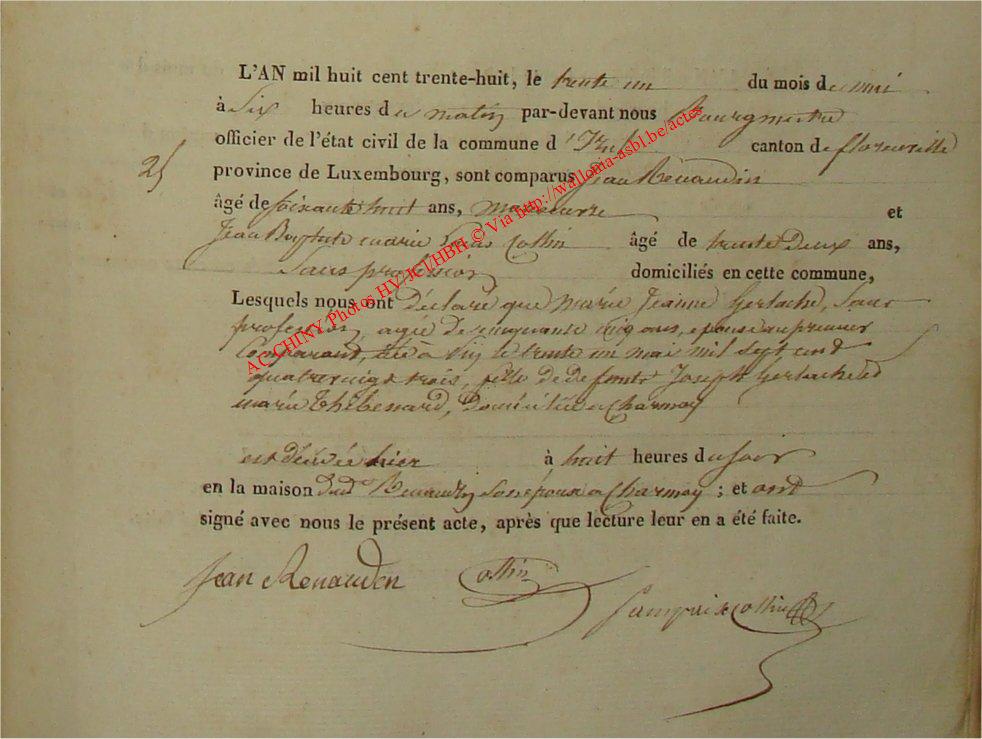 L'AN mil huit cent trente-huit, le trente un du mois de mai
à Six heures du matin par-devant nous Bourgmestre
officier de l'état civil de la commune d' canton de florenville
25
province de Luxembourg, sont comparus Jean Renaudin
âgé de soixante huit ans, manoeuvre et
Jean Baptiste marie Collin âgé de trente Deux ans,
Sans profession domiciliés en cette commune,
Lesquels nous ont déclaré que marie Jeanne Gerlache, Sans
profession, agée de cinquante cinq ans, epouse au premier
Comparant, née à le trente un mai mil sept cent
quatrevingt trois, fille de defunts Joseph Gerlache et
marie domiciliée a Charmoy
est décédée hier à huit heures du soir
en la maison dud Renaudin Son époux a Charmoy ; et ont
signé avec nous le présent acte, après que lecture leur en a été faite.
Jean Renauden Collin
françois Collin
AC CHINY Photos HV/JCl/HBH © Via http://wallonia-asbl.be/actes